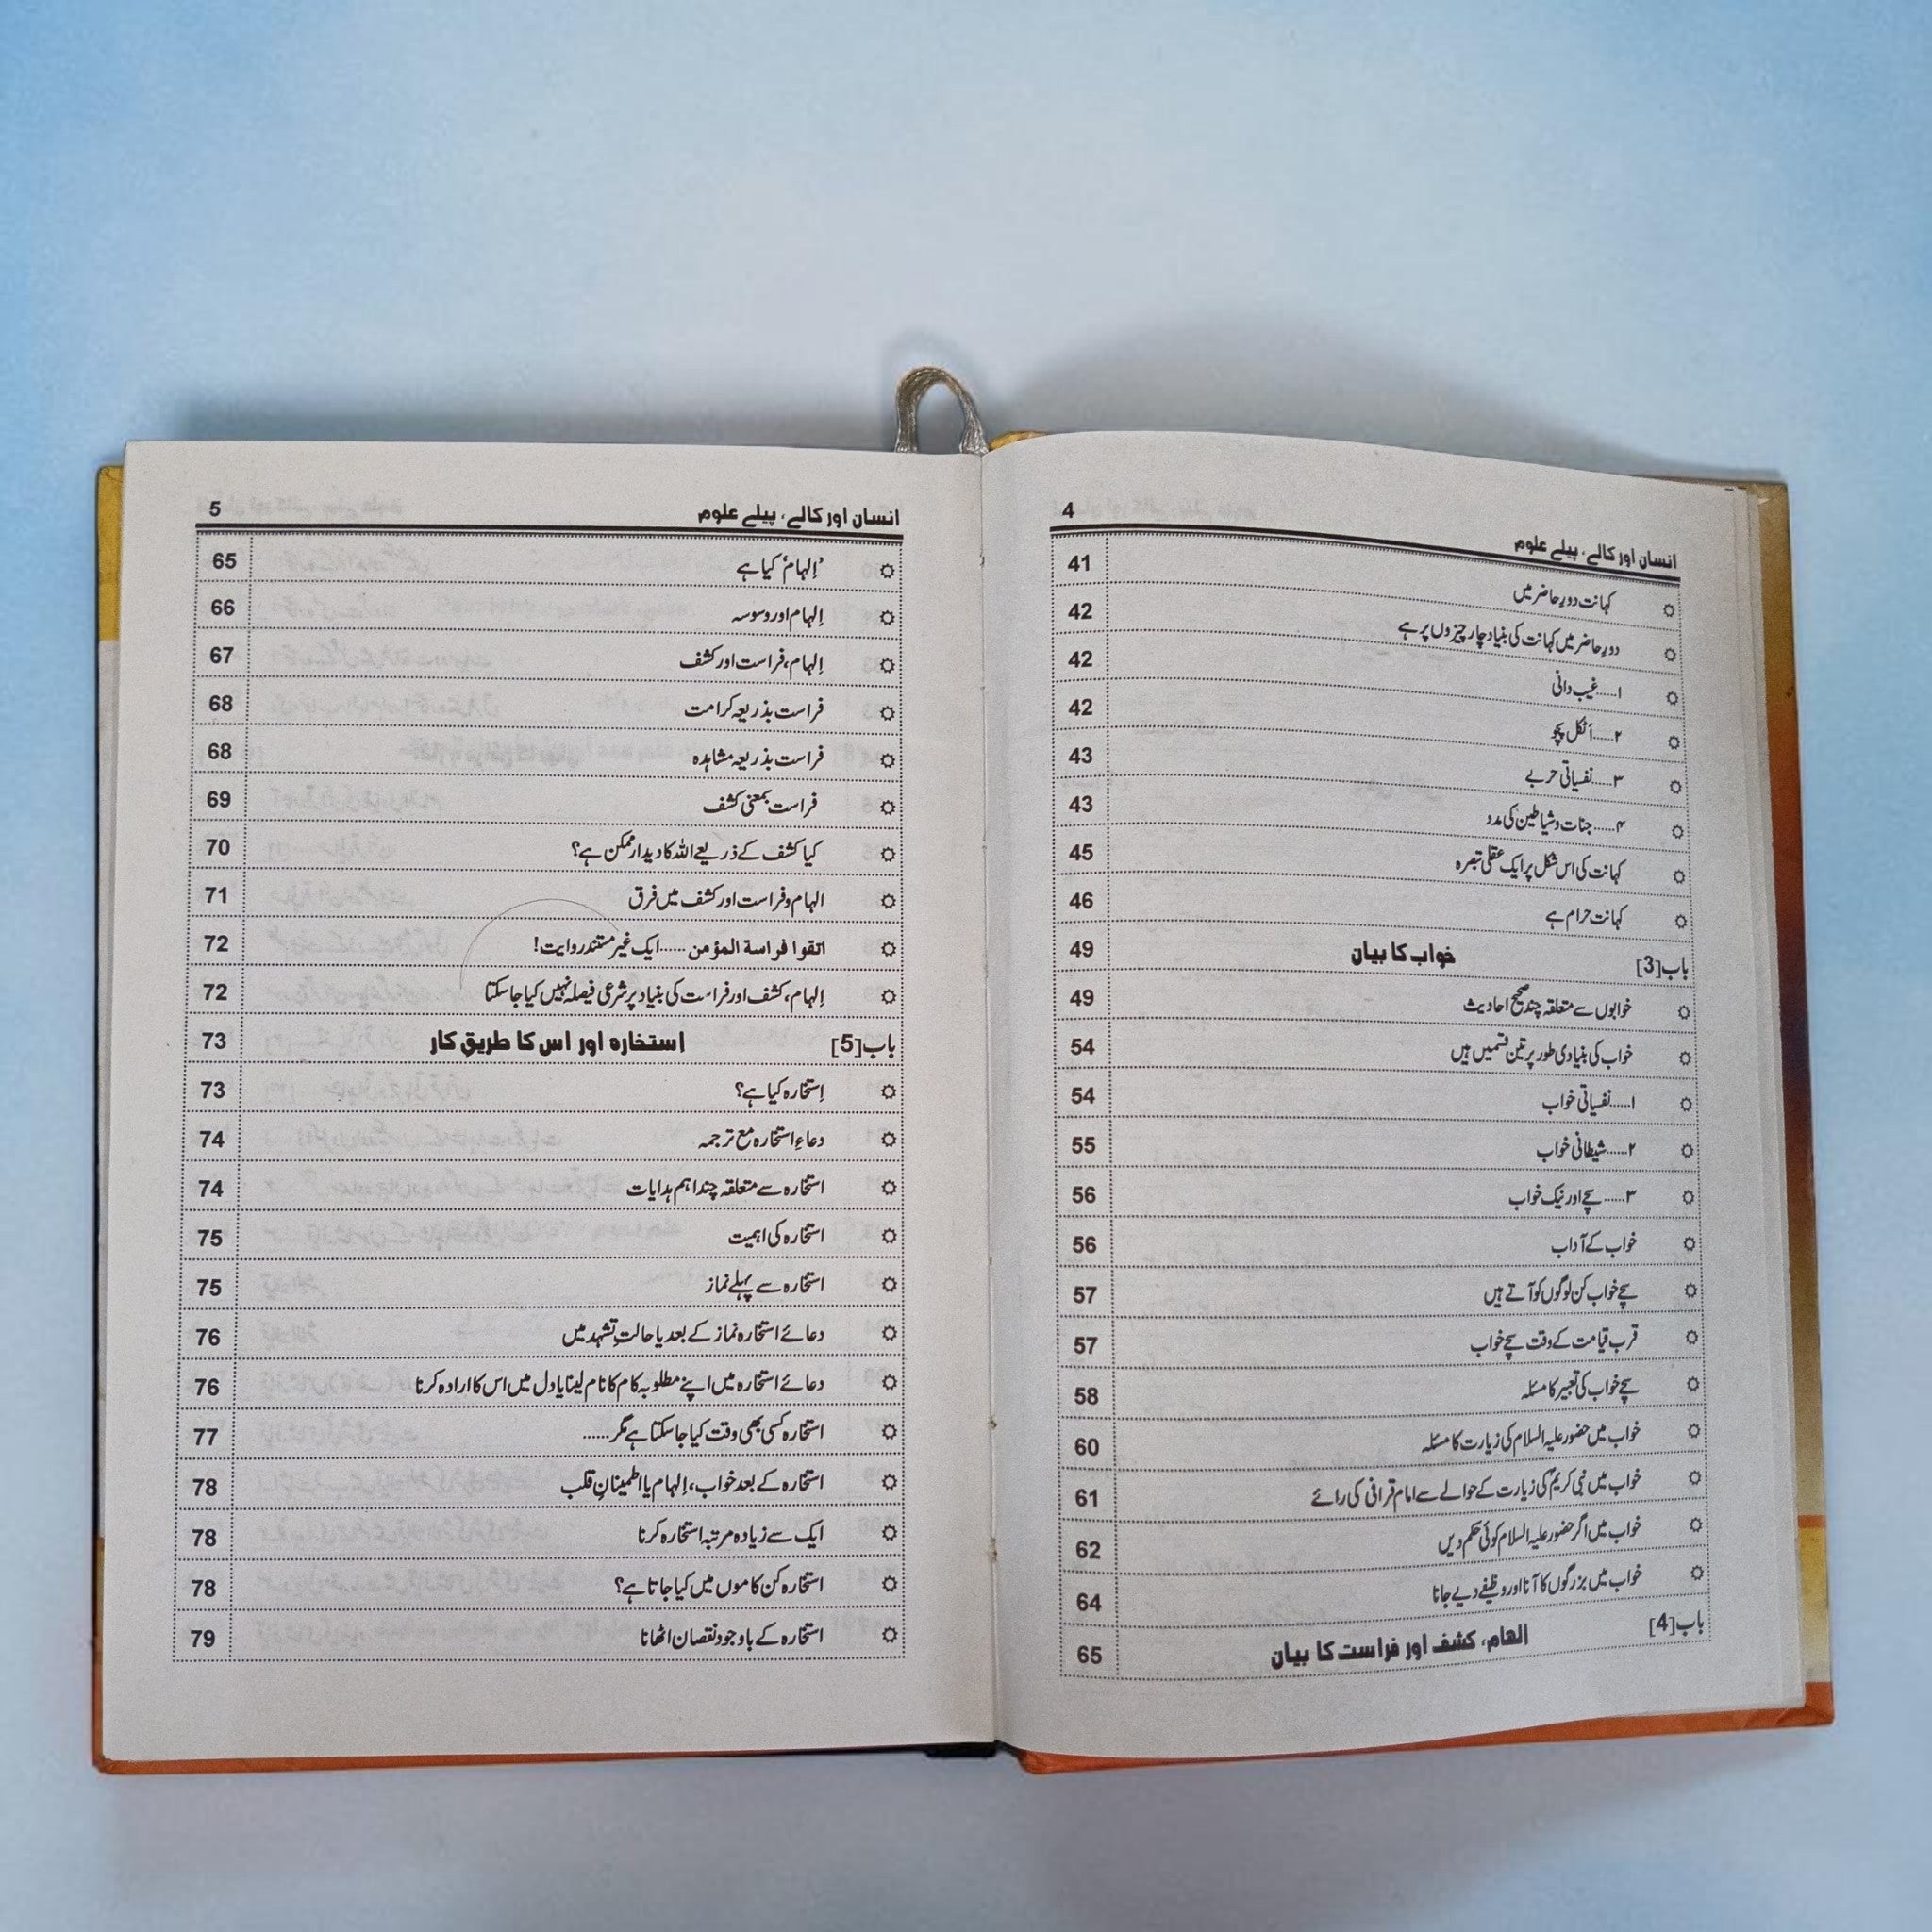 4
انسان اور کالے، پیلے علوم
۞ کہانت دورِ حاضر میں 41
۞ دورِ حاضر میں کہانت کی بنیاد چار چیزوں پر ہے 42
۞ ۱.....غیب دانی 42
۞ ۲.....اَٹکل پچو 42
۞ ۳.....نفسیاتی حربے 43
۞ ۴.....جنات و شیاطین کی مدد 43
۞ کہانت کی اس شکل پر ایک عقلی تبصرہ 45
۞ کہانت حرام ہے 46
باب[3] خواب کا بیان 49
۞ خوابوں سے متعلقہ چند صحیح احادیث 49
۞ خواب کی بنیادی طور پر تین قسمیں ہیں 54
۞ ۱.....نفسیاتی خواب 54
۞ ۲.....شیطانی خواب 55
۞ ۳.....سچے اور نیک خواب 56
۞ خواب کے آداب 56
۞ سچے خواب کن لوگوں کو آتے ہیں 57
۞ قرب قیامت کے وقت سچے خواب 57
۞ سچے خواب کی تعبیر کا مسئلہ 58
۞ خواب میں حضور علیہ السلام کی زیارت کا مسئلہ 60
۞ خواب میں نبی کریم کی زیارت کے حوالے سے امام قرافی کی رائے 61
۞ خواب میں اگر حضور علیہ السلام کوئی حکم دیں 62
۞ خواب میں بزرگوں کا آنا اور وظیفے دیے جانا 64
باب[4] الهام، کشف اور فراست کا بیان 65
5
انسان اور کالے، پیلے علوم
۞ ’اِلہام‘ کیا ہے 65
۞ اِلہام اور وسوسہ 66
۞ اِلہام، فراست اور کشف 67
۞ فراست بذریعہ کرامت 68
۞ فراست بذریعہ مشاہدہ 68
۞ فراست بمعنی کشف 69
۞ کیا کشف کے ذریعے اللہ کا دیدار ممکن ہے؟ 70
۞ الہام و فراست اور کشف میں فرق 71
۞ اتقوا فراسة المؤمن ......ایک غیر مستند روایت! 72
۞ اِلہام، کشف اور فراست کی بنیاد پر شرعی فیصلہ نہیں کیا جا سکتا 72
باب[5] استخارہ اور اس کا طریق کار 73
۞ اِستخارہ کیا ہے؟ 73
۞ دعاءِ استخارہ مع ترجمہ 74
۞ استخارہ سے متعلقہ چند اہم ہدایات 74
۞ استخارہ کی اہمیت 75
۞ استخارہ سے پہلے نماز 75
۞ دعائے استخارہ نماز کے بعد یا حالتِ تشہد میں 76
۞ دعائے استخارہ میں اپنے مطلوبہ کام کا نام لینا یا دل میں اس کا ارادہ کرنا 76
۞ استخارہ کسی بھی وقت کیا جا سکتا ہے مگر...... 77
۞ استخارہ کے بعد خواب، اِلہام یا اطمینانِ قلب 78
۞ ایک سے زیادہ مرتبہ استخارہ کرنا 78
۞ استخارہ کن کاموں میں کیا جاتا ہے؟ 78
۞ استخارہ کے باوجود نقصان اٹھانا 79